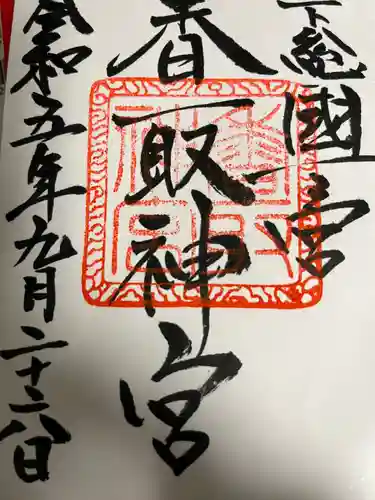 下総國一宮
香取神宮
令和五年九月二十八日
香取神宮